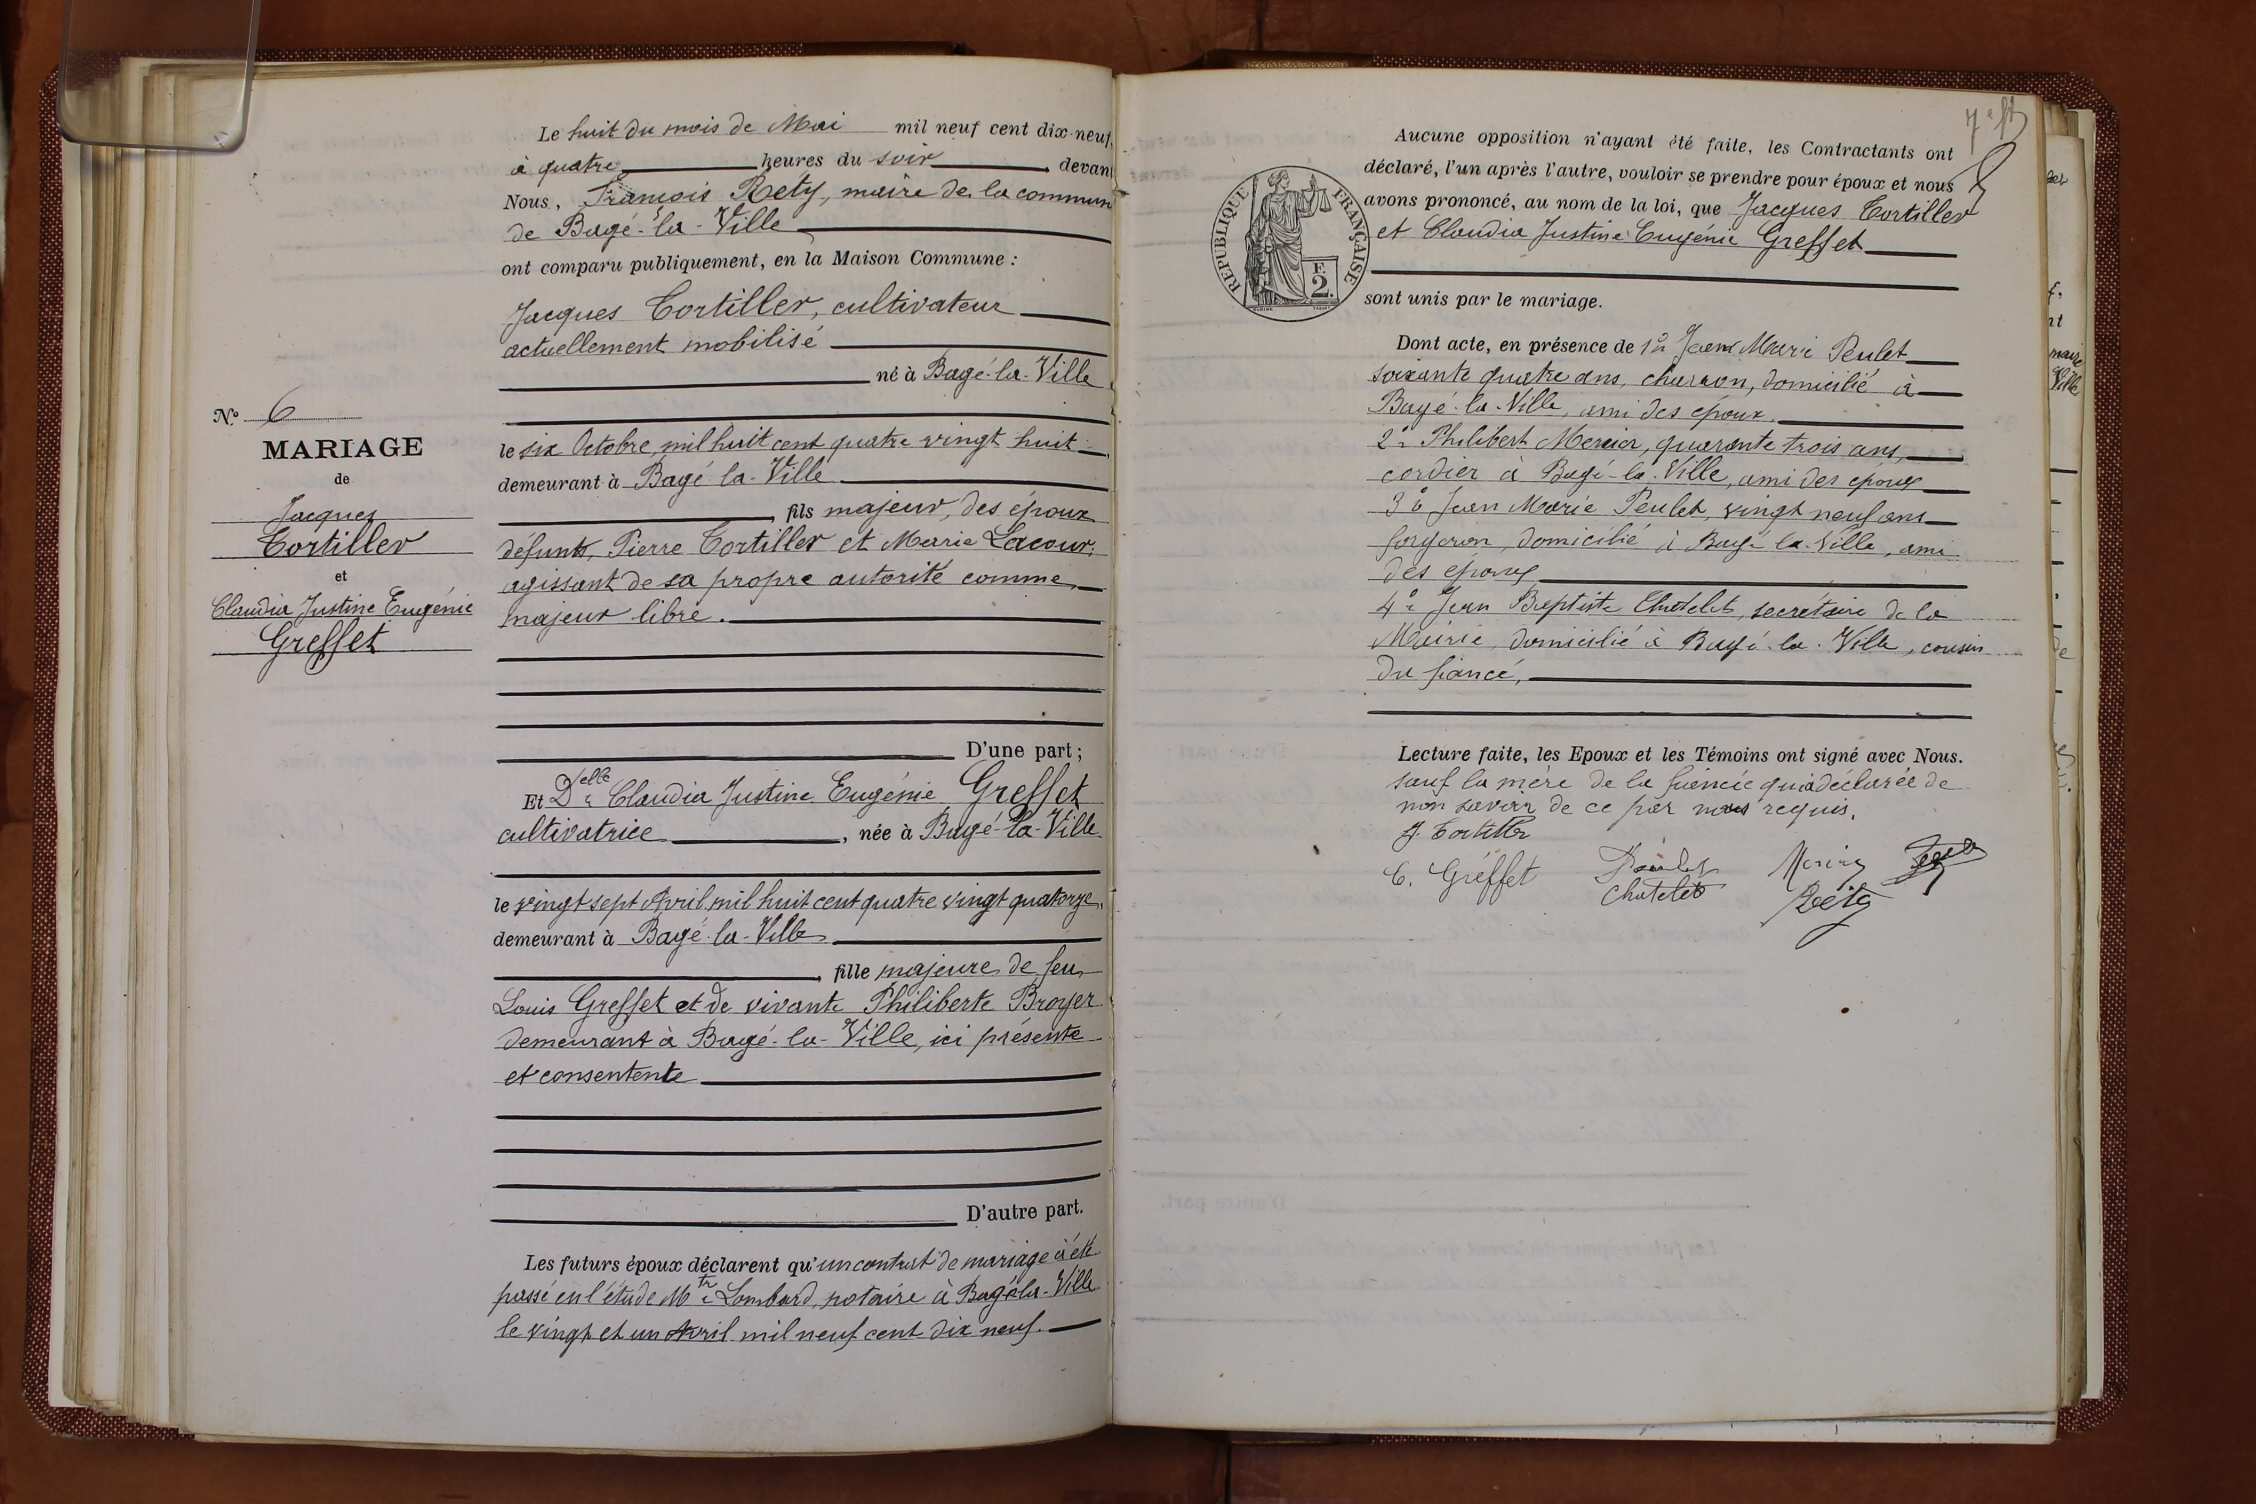 Le huit du mois de Mai mil neuf cent dix-neuf,
à quatre heures du soir, devan
Nous, François Rety, maire de la commun
de Bagé-la-Ville
ont comparu publiquement, en la Maison Commune :
Jacques Tortiller, cultivateur
actuellement mobilisé
né à Bagé-la-Ville
le six Octobre mil huit cent quatre vingt huit
demeurant à Bagé-la-Ville
fils majeur, des époux
défunts, Pierre Tortiller et Marie Lacour,
agissant de sa propre autorité comme
majeur libre.
D'une part ;
Et Delle Claudia Justine Eugénie Greffet
cultivatrice, née à Bagé-la-Ville
le vingt sept Avril mil huit cent quatre vingt quatorze,
demeurant à Bagé-la-Ville
fille majeure de feu
Louis Greffet et de vivante Philiberte Broyer
demeurant à Bagé-la-Ville, ici présente
et consentente
D'autre part.
Les futurs époux déclarent qu'un contrat de mariage à été
passé en l'étude Mtre Lombard, notaire à Bagé-la-Ville
le vingt et un Avril mil neuf cent dix neuf.
N° 6
MARIAGE
de
Jacques
Tortiller
et
Claudia Justine Eugénie
Greffet
7e ft
RÉPUBLIQUE FRANÇAISE
F.
2
Aucune opposition n'ayant été faite, les Contractants ont
déclaré, l'un après l'autre, vouloir se prendre pour époux et nous
avons prononcé, au nom de la loi, que Jacques Tortiller
et Claudia Justine Eugénie Greffet
sont unis par le mariage.
Dont acte, en présence de 1° Jean Marie Peulet
soixante quatre ans, charron, domicilié à
Bagé-la-Ville, ami des époux.
2° Philibert Mercier, quarante trois ans,
cordier à Bagé-la-Ville, ami des époux
3° Jean Marie Peulet, vingt neuf ans
forgeron, domicilié à Bagé-la-Ville, ami
des époux
4° Jean Baptiste Chatelet, secrétaire de la
Mairie, domicilié à Bagé-la-Ville, cousin
du fiancé,
Lecture faite, les Epoux et les Témoins ont signé avec Nous.
sauf la mère de la fiancée qui a déclarée de
non savoir de ce par nous requis.
J. Tortiller
C. Gréffet Peulet
Chatelet Réty